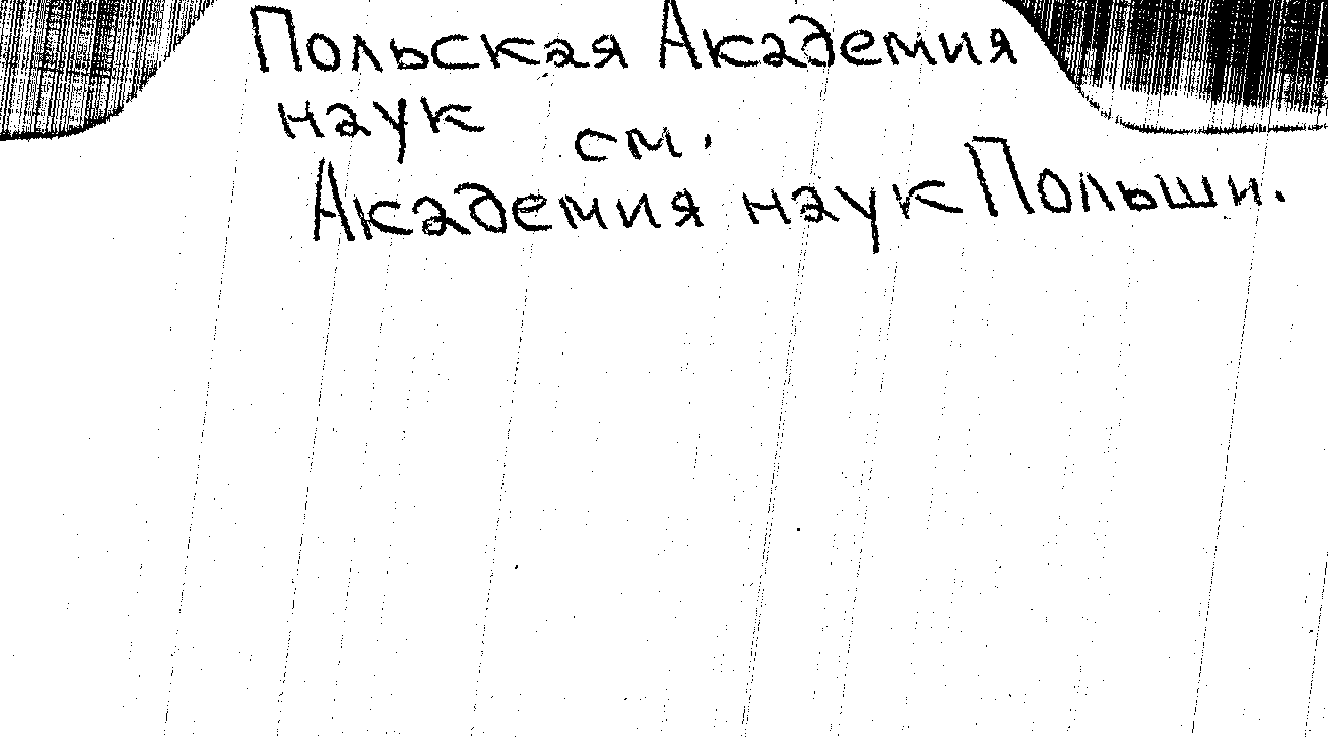 Польская Академия
наук см.
Академия наук Польши.